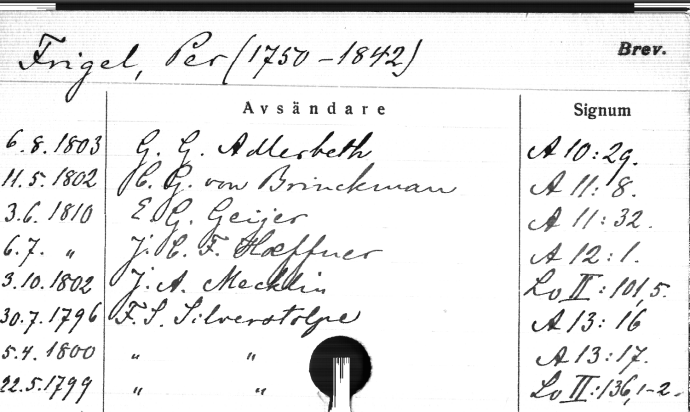 Frigel, Per (1750-1842) Brev.
Avsändare Signum
6.8.1803 G. G. Adlerbeth A 10:29.
11.5.1802 C. G. von Brinckman A 11:8.
3.6.1810 E G. Geijer A 11:32.
6.7. „ J. C. F. Hæffner A 12:1.
3.10.1802 J. A. Mecklin Lo II:101,5.
30.7.1796 F. S. Silverstolpe A 13:16
5.4.1800 „ „ A 13:17.
22.5.1799 „ „ Lo II:136,1-2.